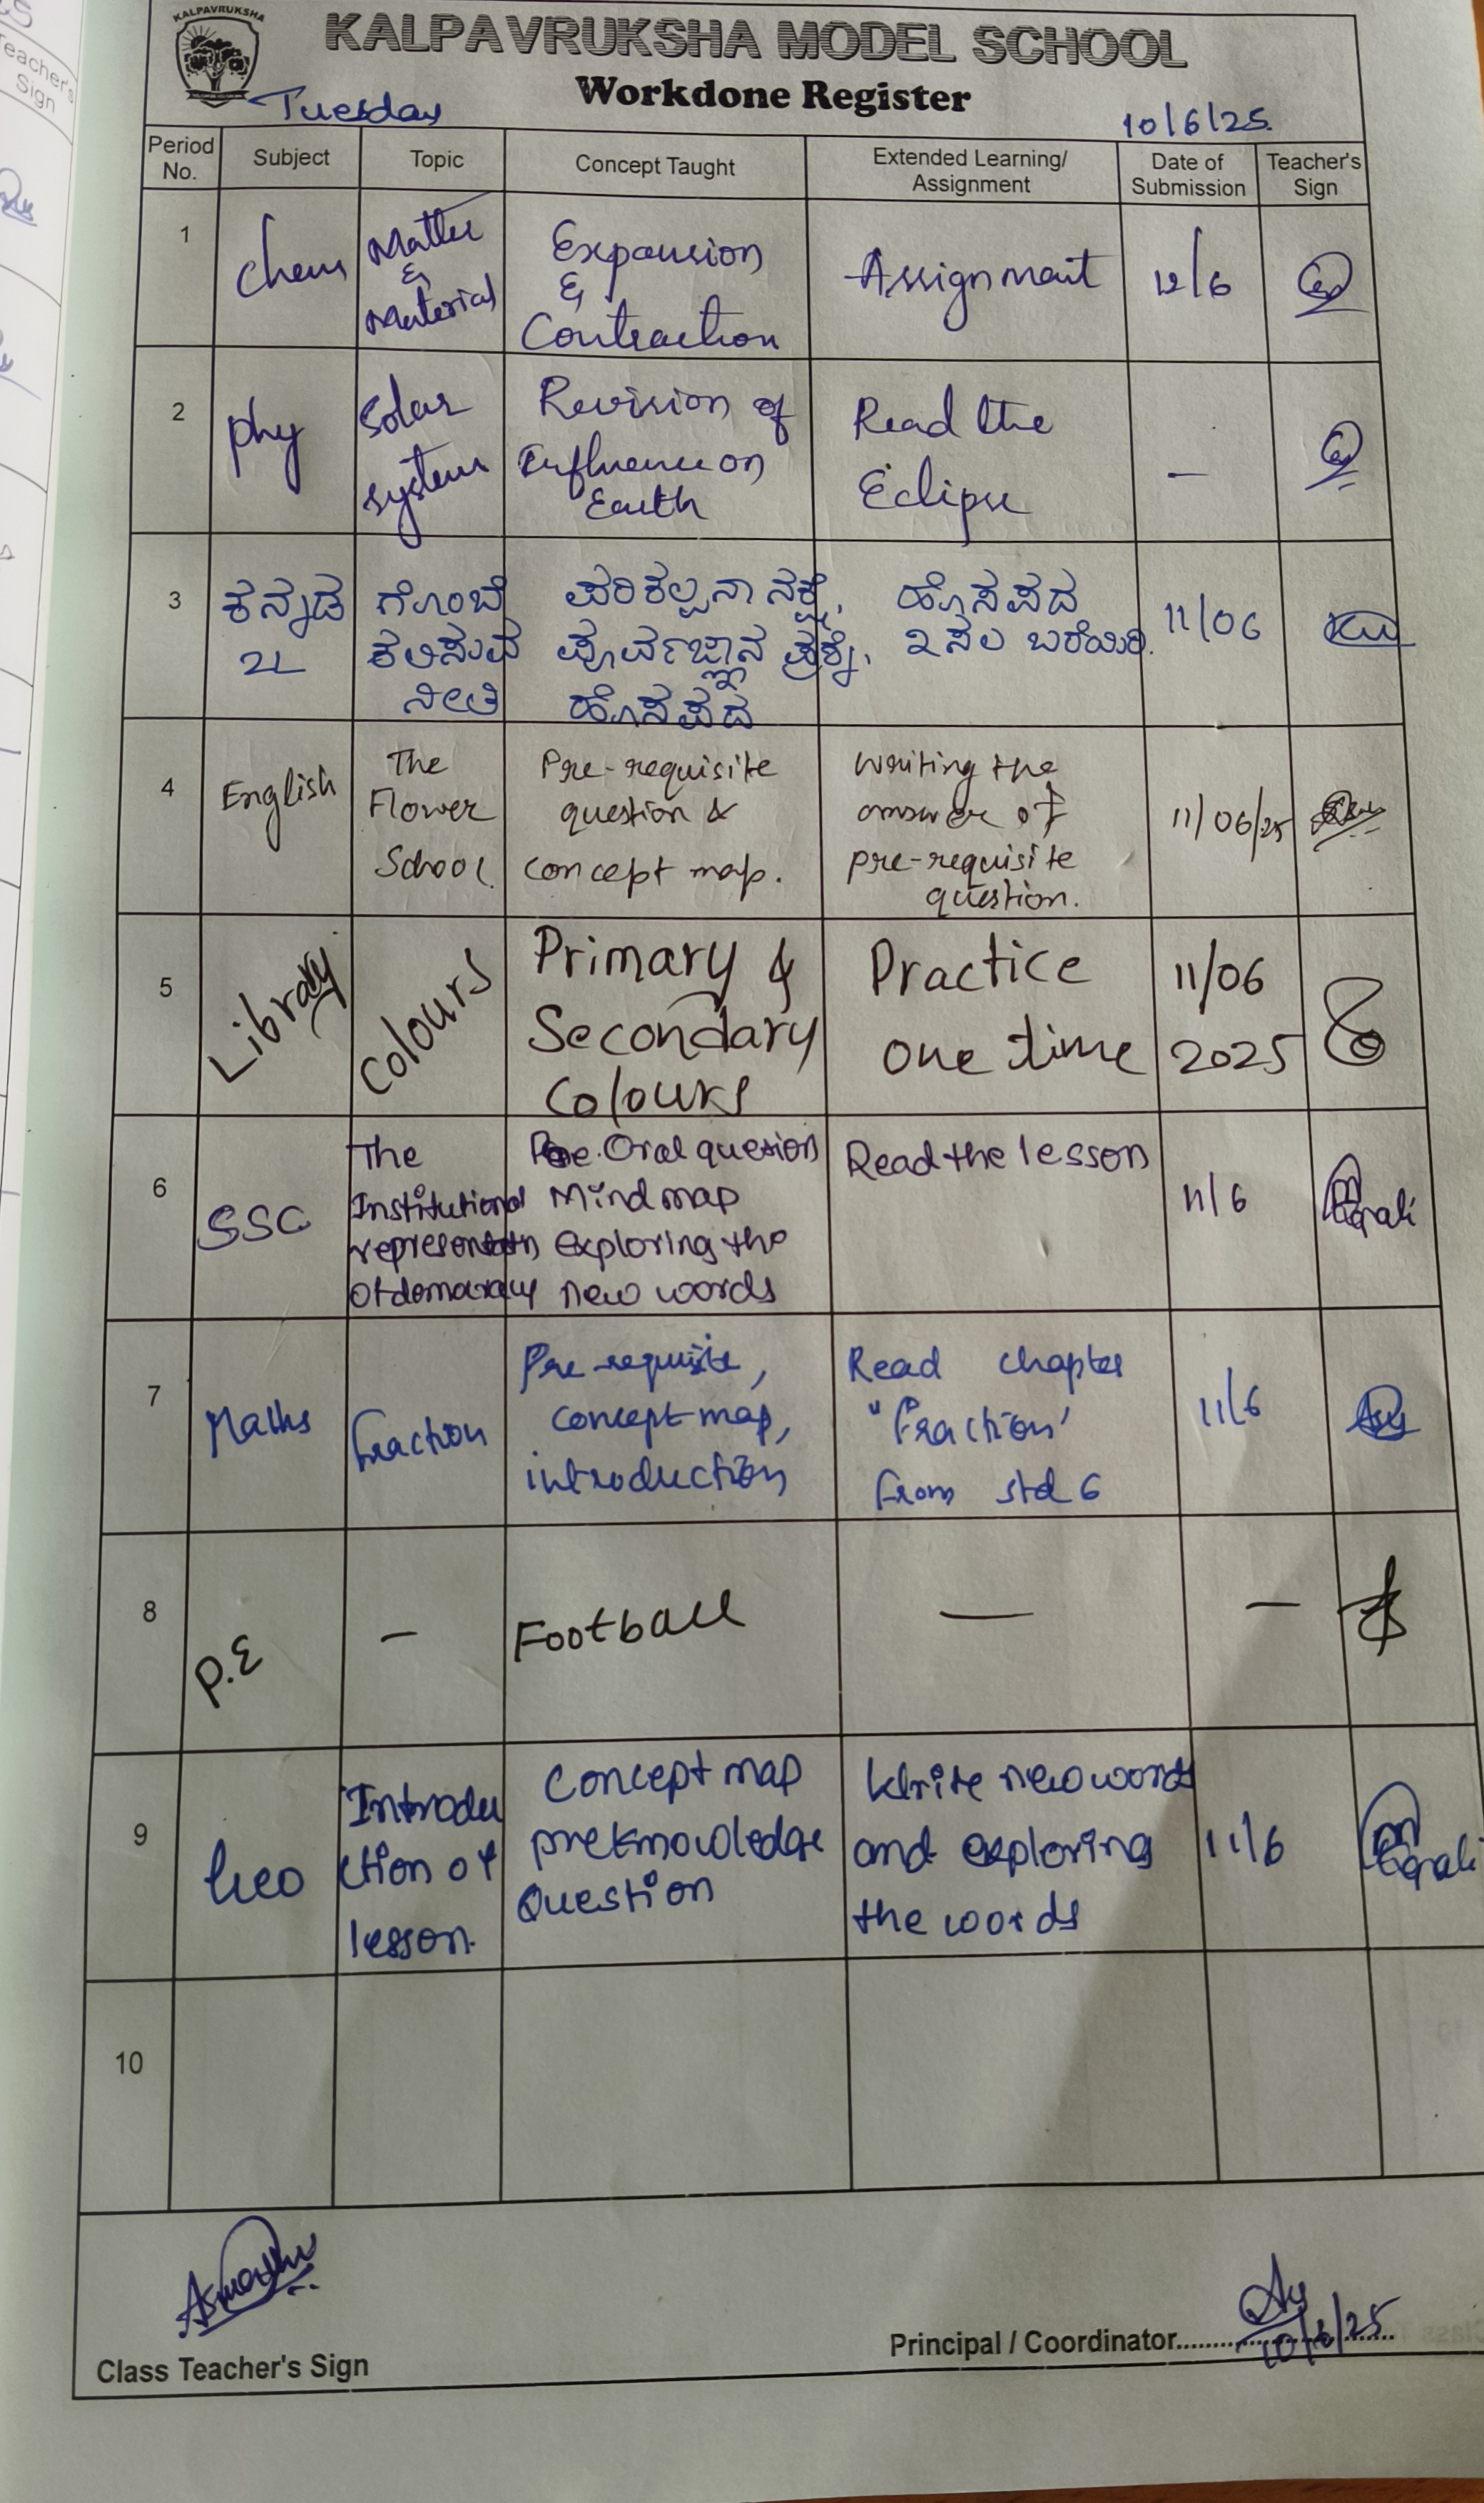 KALPAVRUKSHA
KALPAVRUKSHA MODEL SCHOOL
Workdone Register
Tuesday
10/6/25.
Period No.
Subject
Topic
Concept Taught
Extended Learning/ Assignment
Date of Submission
Teacher's Sign
1
Chem
Matter
&
Material
Expansion
&
Contraction
Assignment
12/6
2
phy
Solar
system
Revision of
Influence on
Earth
Read the
Eclipse
-
3
ಕನ್ನಡ
2L
ಗೊಂಬೆ
ಕಲಿಸುವ
ನೀತಿ
ಪರಿಕಲ್ಪನಾ ನಕ್ಷೆ,
ಪೂರ್ವಜ್ಞಾನ ಪ್ರಶ್ನೆ,
ಹೊಸಪದ
ಹೊಸಪದ
೨ ಸಲ ಬರೆಯಿರಿ.
11/06
4
English
The
Flower
School.
Pre-requisite
question &
concept map.
Writing the
answer of
pre-requisite
question.
11/06/25
5
Library
Colours
Primary &
Secondary
Colours
Practice
one time
11/06
2025
6
SSC
The
Institutional
representation
Of democracy
Pre. Oral question
Mind map
exploring the
new words
Read the lesson
11/6
7
Maths
fraction
Pre-requisite,
concept map,
introduction
Read chapter
"Fraction'
from std 6
11/6
8
P.E
-
Football
—
—
9
Geo
Introdu
ction of
lesson.
Concept map
preknowledge
Question
Write new words
and exploring
the words
11/6
10
Class Teacher's Sign
Principal / Coordinator
10/6/25
Teacher's
Sign